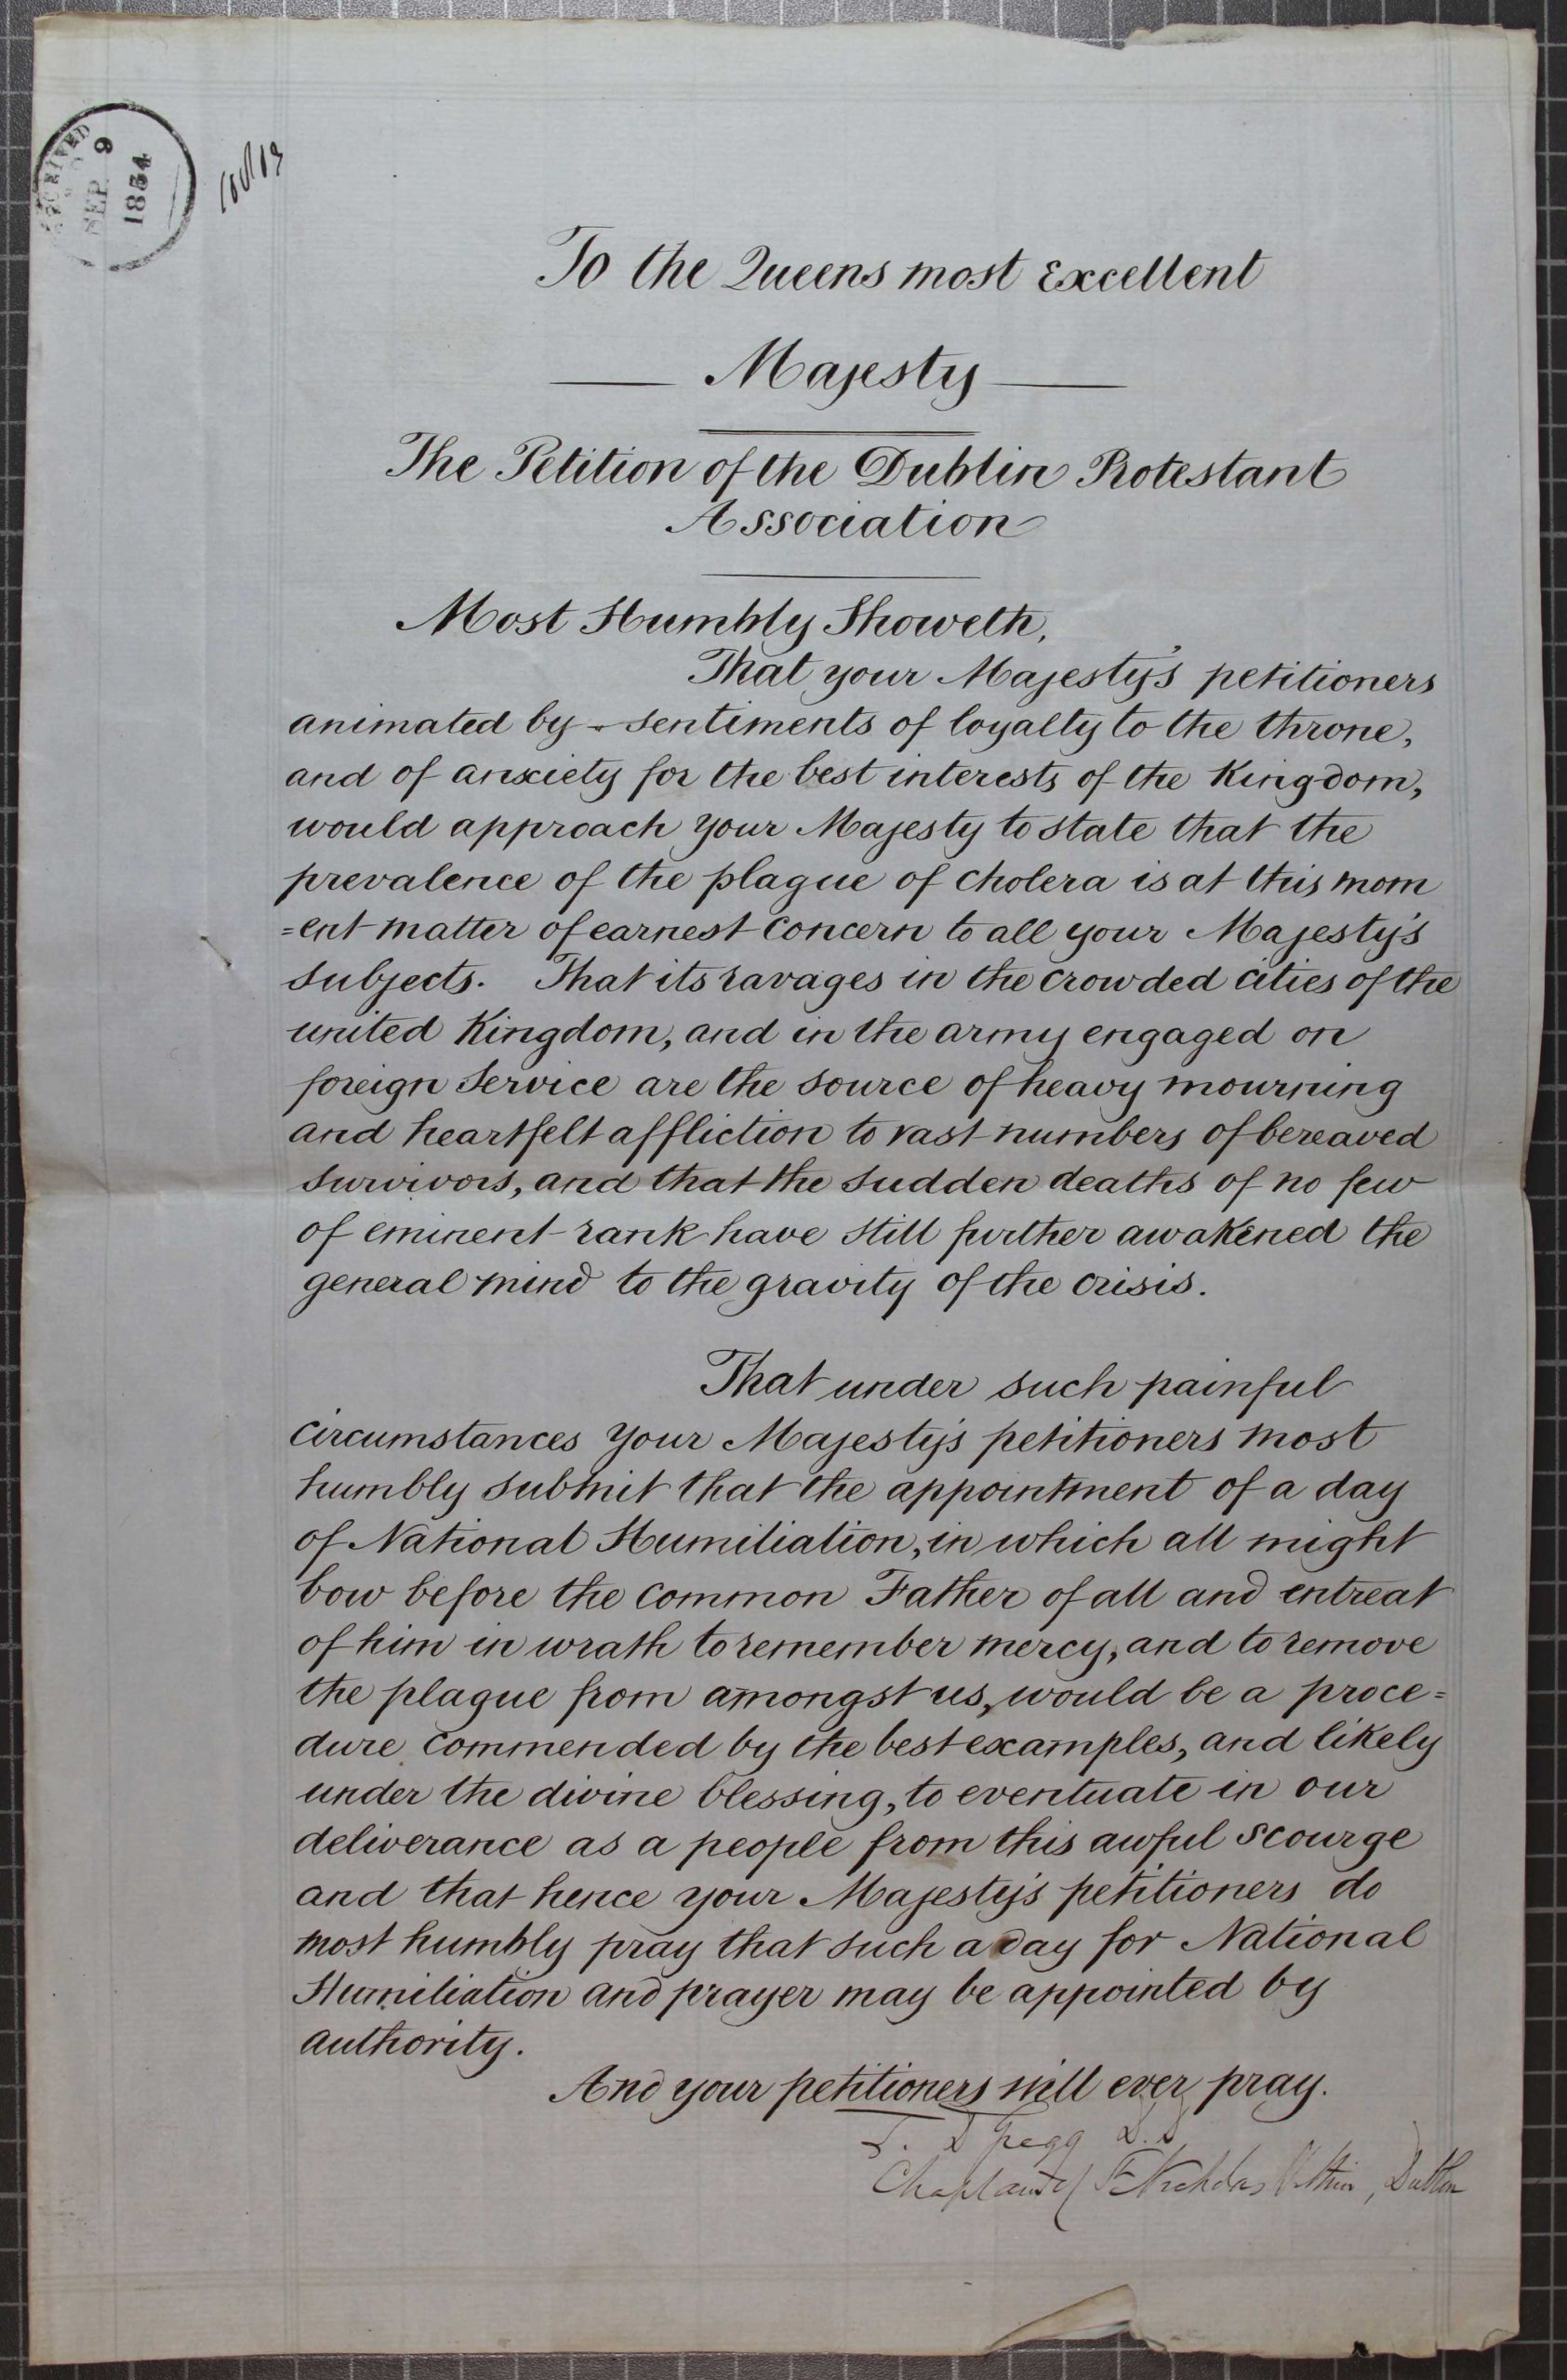 RECEIVED
SEP 9
1854
To the Queens most Excellent
Majesty
The Petition of the Dublin Protestant
Association
Most Humbly Showeth,
That your Majesty's petitioners
animated by sentiments of loyalty to the throne,
and of anxiety for the best interests of the Kingdom,
would approach your Majesty to state that the
prevalence of the plague of cholera is at this mom
=ent matter of earnest concern to all your Majesty's
subjects. That its ravages in the crowded cities of the
united Kingdom, and in the army engaged on
foreign service are the source of heavy mourning
and heartfelt affliction to vast numbers of bereaved
survivors, and that the sudden deaths of no few
of eminent rank have still further awakened the
general mind to the gravity of the crisis.
That under such painful
circumstances your Majesty's petitioners most
humbly submit that the appointment of a day
of National Humiliation, in which all might
bow before the common Father of all and entreat
of him in wrath to remember mercy, and to remove
the plague from amongst us, would be a proce=
dure commended by the best examples, and likely
under the divine blessing, to eventuate in our
deliverance as a people from this awful scourge
and that hence your Majesty's petitioners do
most humbly pray that such a day for National
Humiliation and prayer may be appointed by
authority.
And your petitioners will ever pray.
T. D Gregg D.D
Chaplain of St Nicholas Within, Dublin